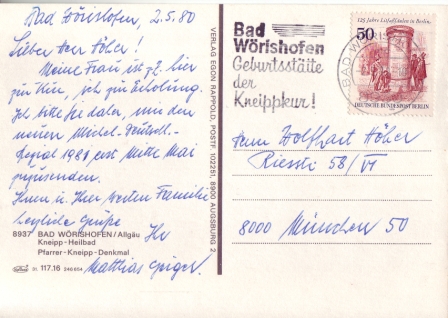 Bad Wörishofen, 2.5.80
Lieber Herr Höher!
Meine Frau ist z.Z. hier
zur Kur, ich zur Erholung.
Ich bitte Sie daher, mir den
neuen Michel-Deutschl.-
1980 erst Mitte Mai
zuzusenden.
Ihnen u. Ihrer werten Familie
herzliche Grüße
Ihr
Matthias Geiger
8937 BAD WÖRISHOFEN/Allgäu
Kneipp-Heilbad
Pfarrer-Kneipp-Denkmal
31 117.16 246604
VERLAG EGON RAPPOLD, POSTF. 102251, 8900 AUGSBURG 2
Bad
Wörishofen
Geburtsstätte
der
Kneippkur!
BAD WÖ
125 Jahre Litfaßsäulen in Berlin
50
DEUTSCHE BUNDESPOST BERLIN
Herrn Wolfhart Höher
Riesstr. 58/VI
8000 München 50